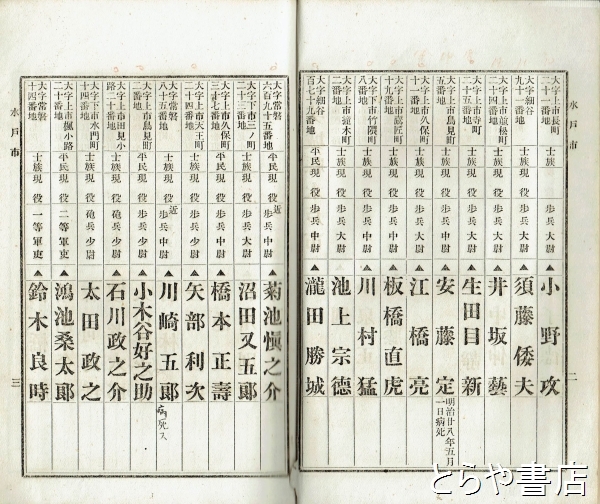 水戸市
二
大字上市長町 士族 現役 步兵大尉 ▲小野攻
大字細谷 士族 現役 步兵大尉 ▲須藤倭夫
士族 現役 步兵大尉 ▲井坂藝
大字上市寺町 士族 現役 步兵大尉 ▲生田目新
大字上市鳥見町 士族 現役 步兵大尉 ▲安藤定 明治廿八年五月一日病死
大字上市久保町 士族 現役 步兵大尉 ▲江橋亮
大字上市 十九番地 平民 現役 步兵大尉 ▲板橋直虎
大字下市竹隈町 八番地 士族 現役 步兵中尉 ▲川村猛
士族 現役 步兵大尉 ▲池上宗德
大字細谷 百七十九番地 平民 現役 步兵大尉 ▲瀧田勝城
大字常磐 六百九十五番地 平民 現役 近 步兵中尉 ▲菊池愼之介
大字下市三ノ町 士族 現役 步兵大尉 ▲沼田又五郞
大字上市久保町 平民 現役 步兵中尉 ▲橋本正壽
大字上市天王町 二十四番地 士族 現役 步兵少尉 ▲矢部利次
大字常磐 八十五番地 士族 現役 近 步兵中尉 ▲川崎五郞 病死ス
大字上市鳥見町 二番地 士族 現役 步兵少尉 ▲小木谷好之助
大字上市田見小路二十番地 士族 現役 砲兵少尉 ▲石川政之介
大字下市水門町 十四番地 士族 現役 砲兵少尉 ▲太田政之
大字上市楓小路 二十番地 士族 現役 二等軍吏 ▲鴻池桑太郞
大字常磐 十四番地 士族 現役 一等軍吏 ▲鈴木良時
水戸市
三
とらや書店